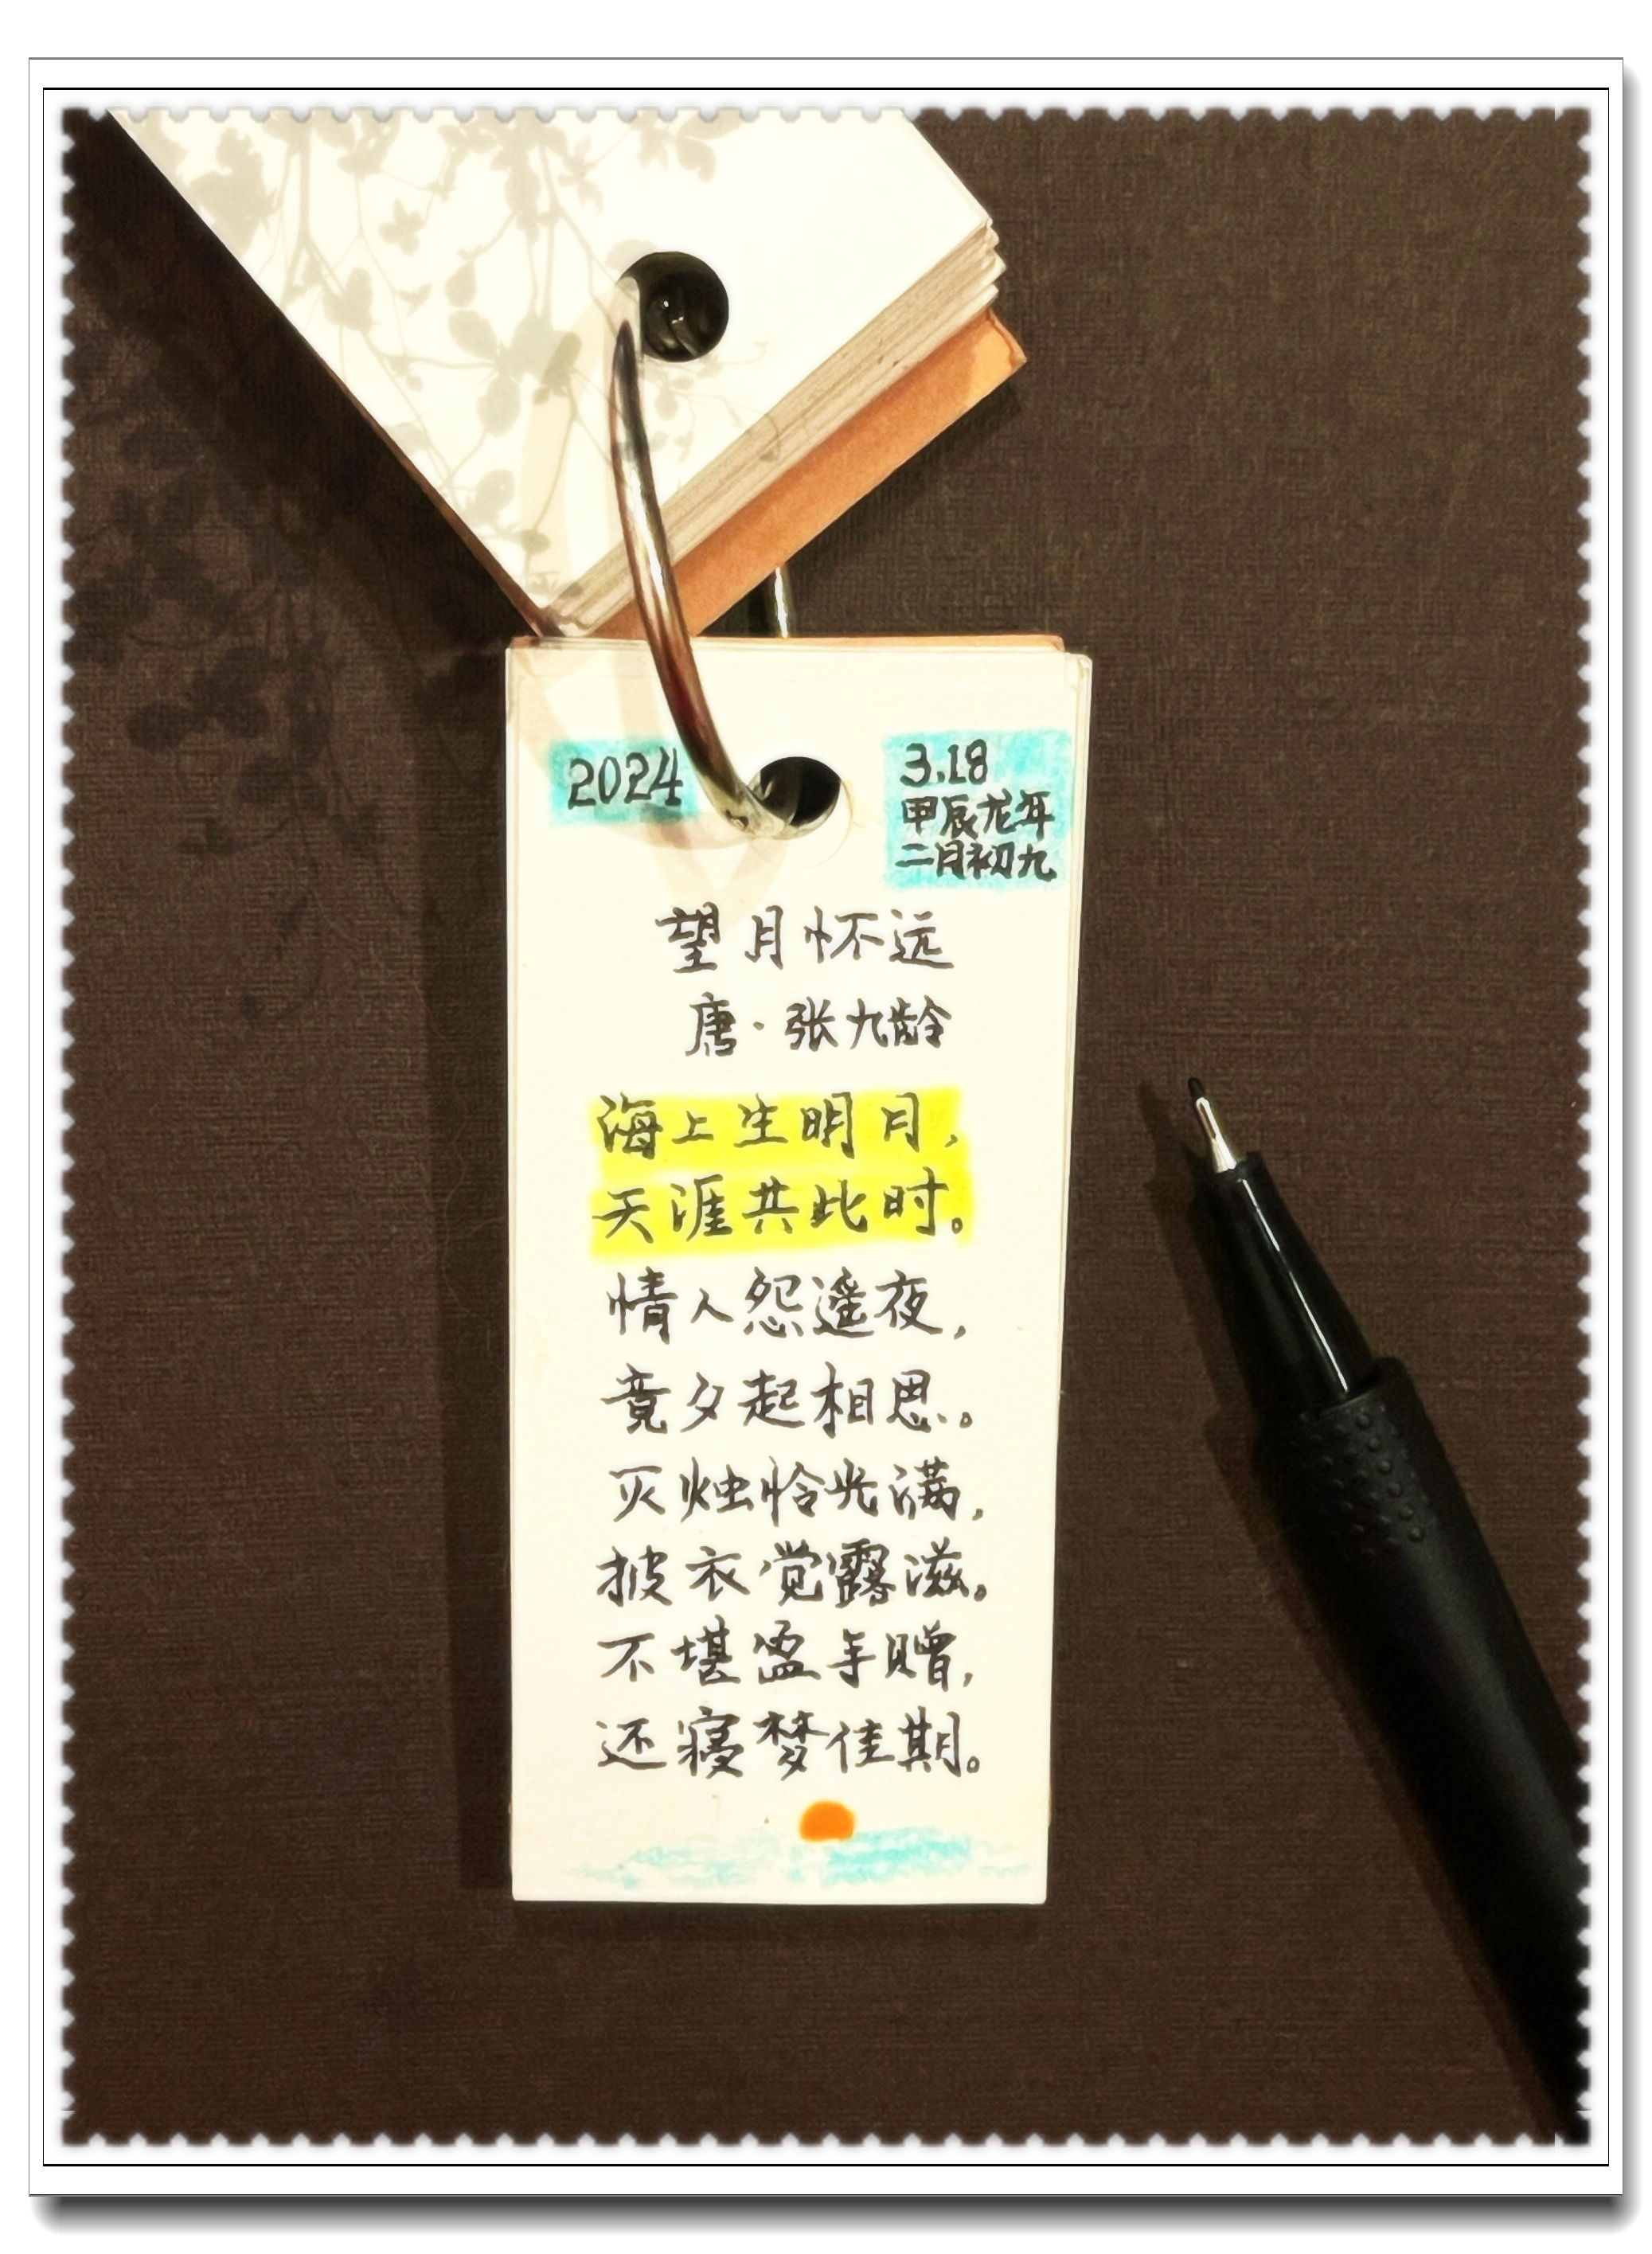 2024
3.18
甲辰龙年
二月初九
望月怀远
唐·张九龄
海上生明月，
天涯共此时。
情人怨遥夜，
竟夕起相思。
灭烛怜光满，
披衣觉露滋。
不堪盈手赠，
还寝梦佳期。